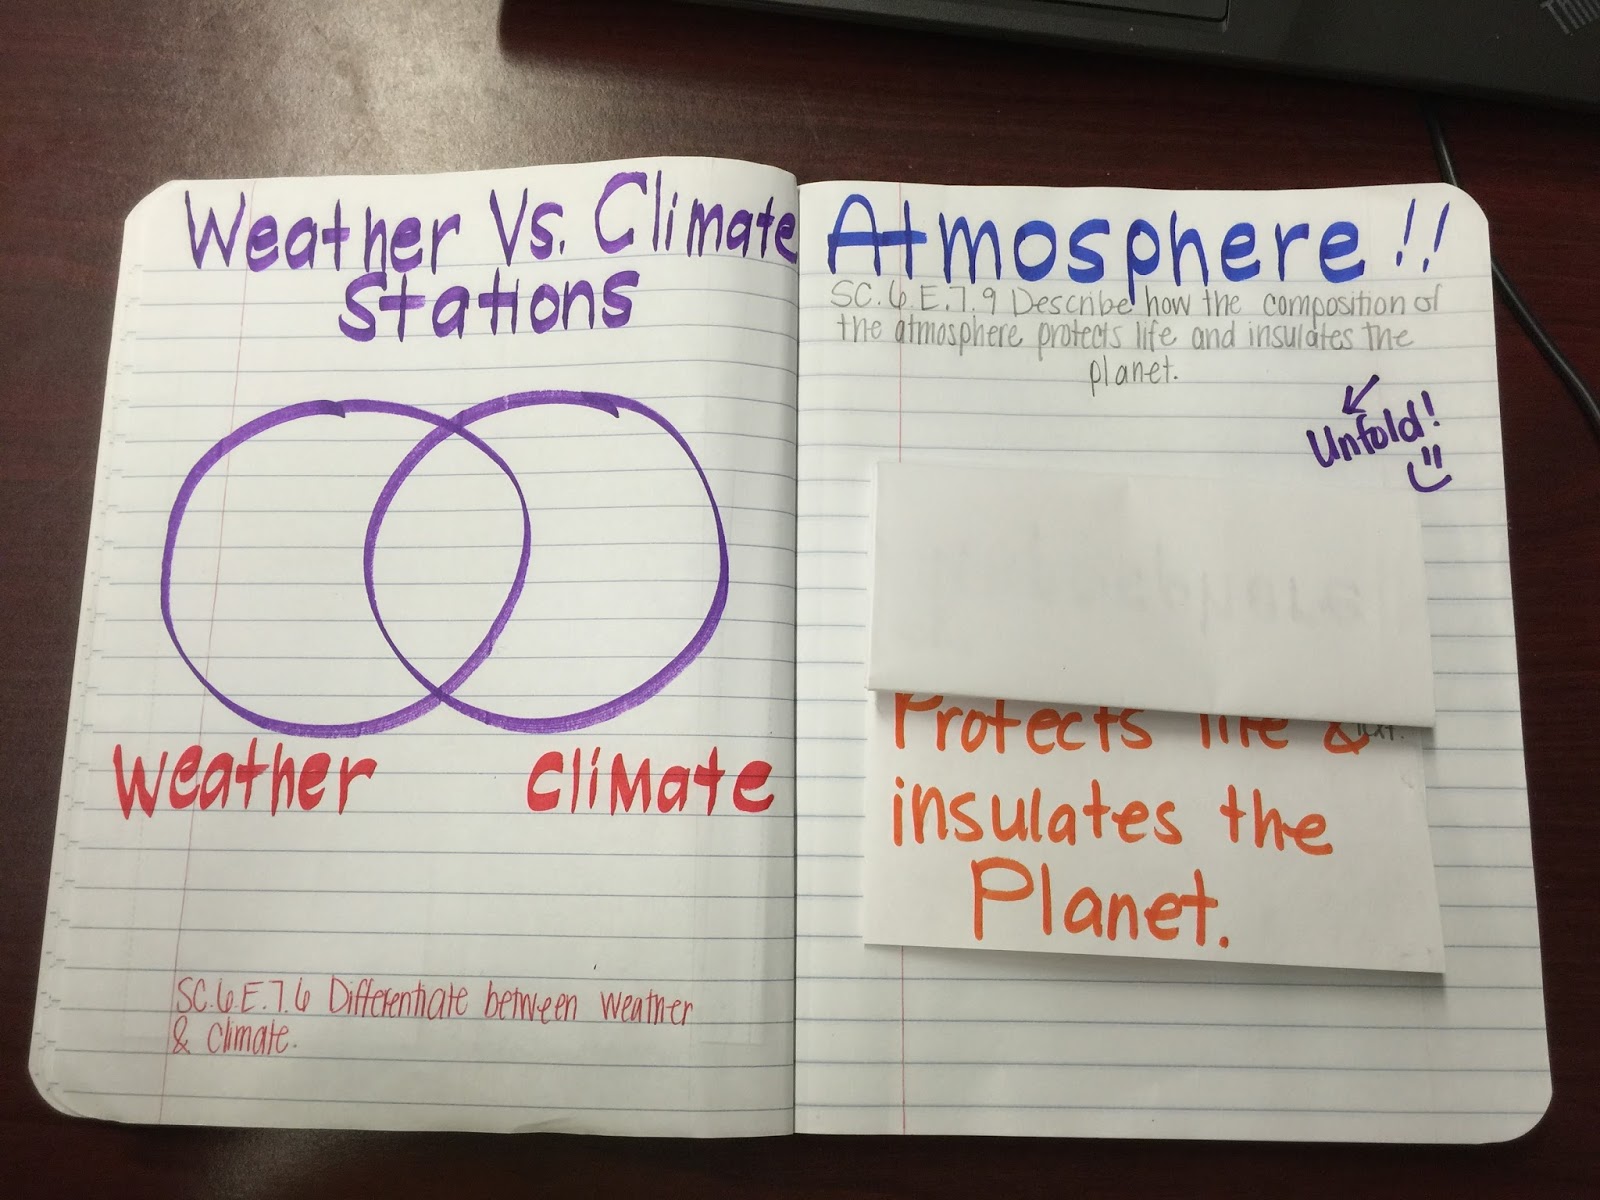 Weather Vs. Climate
Stations
Weather
Climate
SC.6.E.7.6 Differentiate between weather
& climate.
Atmosphere!!
SC.6.E.7.9 Describe how the composition of
the atmosphere protects life and insulates the
planet.
Unfold!
Protects life &
insulates the
Planet.